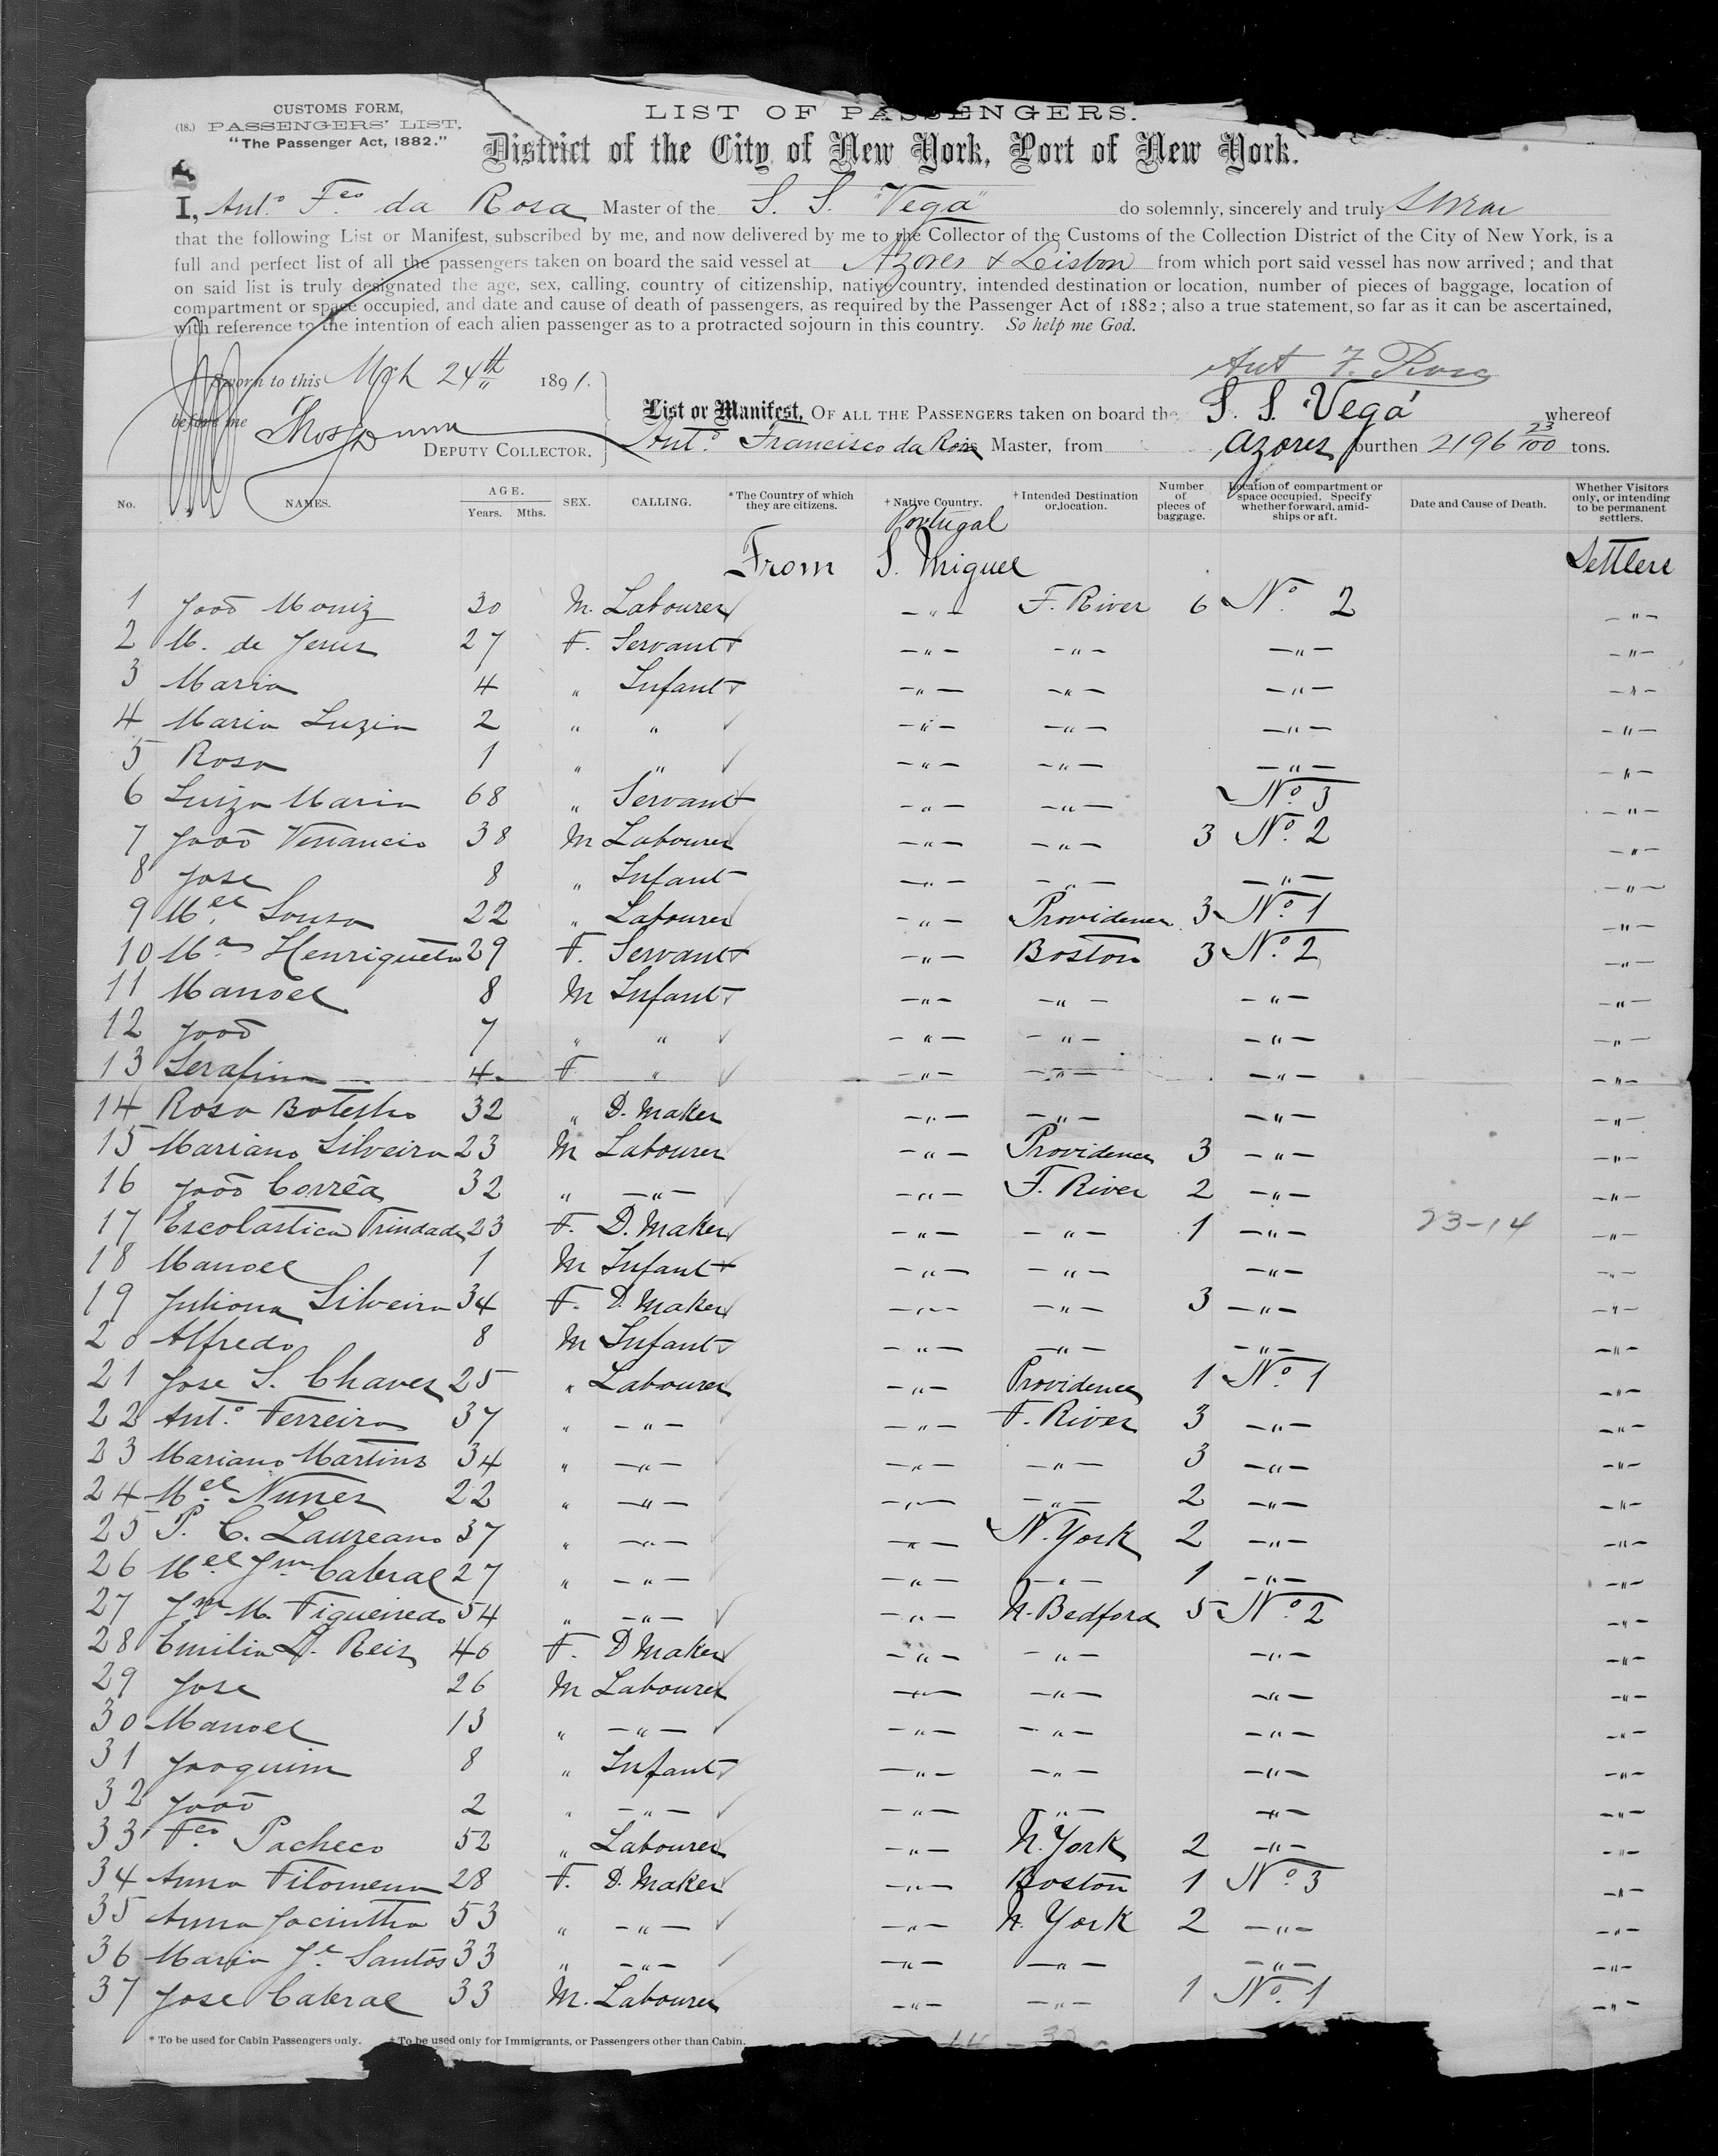 CUSTOMS FORM,
(18.) PASSENGERS' LIST,
"The Passenger Act, 1882."
LIST OF PASSENGERS.
District of the City of New York, Port of New York.
I, Ant.o F.co da Rosa Master of the S. S. "Vega" do solemnly, sincerely and truly Swear
that the following List or Manifest, subscribed by me, and now delivered by me to the Collector of the Customs of the Collection District of the City of New York, is a
full and perfect list of all the passengers taken on board the said vessel at Azores & Lisbon from which port said vessel has now arrived; and that
on said list is truly designated the age, sex, calling, country of citizenship, native country, intended destination or location, number of pieces of baggage, location of
compartment or space occupied, and date and cause of death of passengers, as required by the Passenger Act of 1882; also a true statement, so far as it can be ascertained,
with reference to the intention of each alien passenger as to a protracted sojourn in this country. So help me God.
Sworn to this Mch 24th 1891.
Ant F. Rosa
before me
List or Manifest, OF ALL THE PASSENGERS taken on board the S. S. "Vega" whereof
DEPUTY COLLECTOR.
Ant.o Francisco da Rosa Master, from Azores burthen 2196 23/100 tons.
No. NAMES. AGE. Years. Mths. SEX. CALLING. *The Country of which they are citizens. †Native Country. †Intended Destination or location. Number of pieces of baggage. Location of compartment or space occupied. Specify whether forward, amidships or aft. Date and Cause of Death. Whether Visitors only, or intending to be permanent settlers.
Portugal
From S. Miguel Settlers
1 João Moniz 30 M. Labourer -"- F. River 6 No. 2 -"-
2 M. de Jesus 27 F. Servant -"- -"- -"- -"-
3 Maria 4 " Infant -"- -"- -"- -"-
4 Maria Luzia 2 " " -"- -"- -"- -"-
5 Rosa 1 " " -"- -"- -"- -"-
6 Luiza Maria 68 " Servant -"- -"- No. 3 -"-
7 João Venancio 38 M Labourer -"- -"- 3 No. 2 -"-
8 Jose 8 " Infant -"- -"- -"- -"-
9 M.el Sousa 22 " Labourer -"- Providence 3 No. 1 -"-
10 M.a Henriqueta 29 F. Servant -"- Boston 3 No. 2 -"-
11 Manoel 8 M Infant -"- -"- -"- -"-
12 João 7 " " -"- -"- -"- -"-
13 Serafina 4 F " -"- -"- -"- -"-
14 Rosa Botelho 32 " D. Maker -"- -"- -"- -"-
15 Mariano Silveira 23 M Labourer -"- Providence 3 -"- -"-
16 João Corrêa 32 " -"- -"- F. River 2 -"- -"-
17 Escolastica Trindade 23 F. D. Maker -"- -"- 1 -"- 23-14 -"-
18 Manoel 1 M Infant -"- -"- -"- -"-
19 Juliona Silveira 34 F. D. Maker -"- -"- 3 -"- -"-
20 Alfredo 8 M Infant -"- -"- -"- -"-
21 Jose S. Chaves 25 " Labourer -"- Providence 1 No. 1 -"-
22 Ant.o Ferreira 37 " -"- -"- F. River 3 -"- -"-
23 Mariano Martins 34 " -"- -"- -"- 3 -"- -"-
24 M.el Nunes 22 " -"- -"- -"- 2 -"- -"-
25 P. C. Laureano 37 " -"- -"- N. York 2 -"- -"-
26 M.el Jm Cabral 27 " -"- -"- -"- 1 -"- -"-
27 Jm M. Figueiredo 54 " -"- -"- N. Bedford 5 No. 2 -"-
28 Emilia D. Reis 40 F. D Maker -"- -"- -"- -"-
29 Jose 26 M Labourer -"- -"- -"- -"-
30 Manoel 13 " -"- -"- -"- -"- -"-
31 Joaquim 8 " Infant -"- -"- -"- -"-
32 João 2 " -"- -"- -"- -"- -"-
33 F.co Pacheco 52 " Labourer -"- N. York 2 -"- -"-
34 Anna Filomena 28 F. D. Maker -"- Boston 1 No. 3 -"-
35 Anna Jacintha 53 " -"- -"- N. York 2 -"- -"-
36 Maria J.e Santos 33 " -"- -"- -"- -"- -"-
37 Jose Cabral 33 M. Labourer -"- -"- 1 No. 1 -"-
* To be used for Cabin Passengers only. † To be used only for Immigrants, or Passengers other than Cabin.